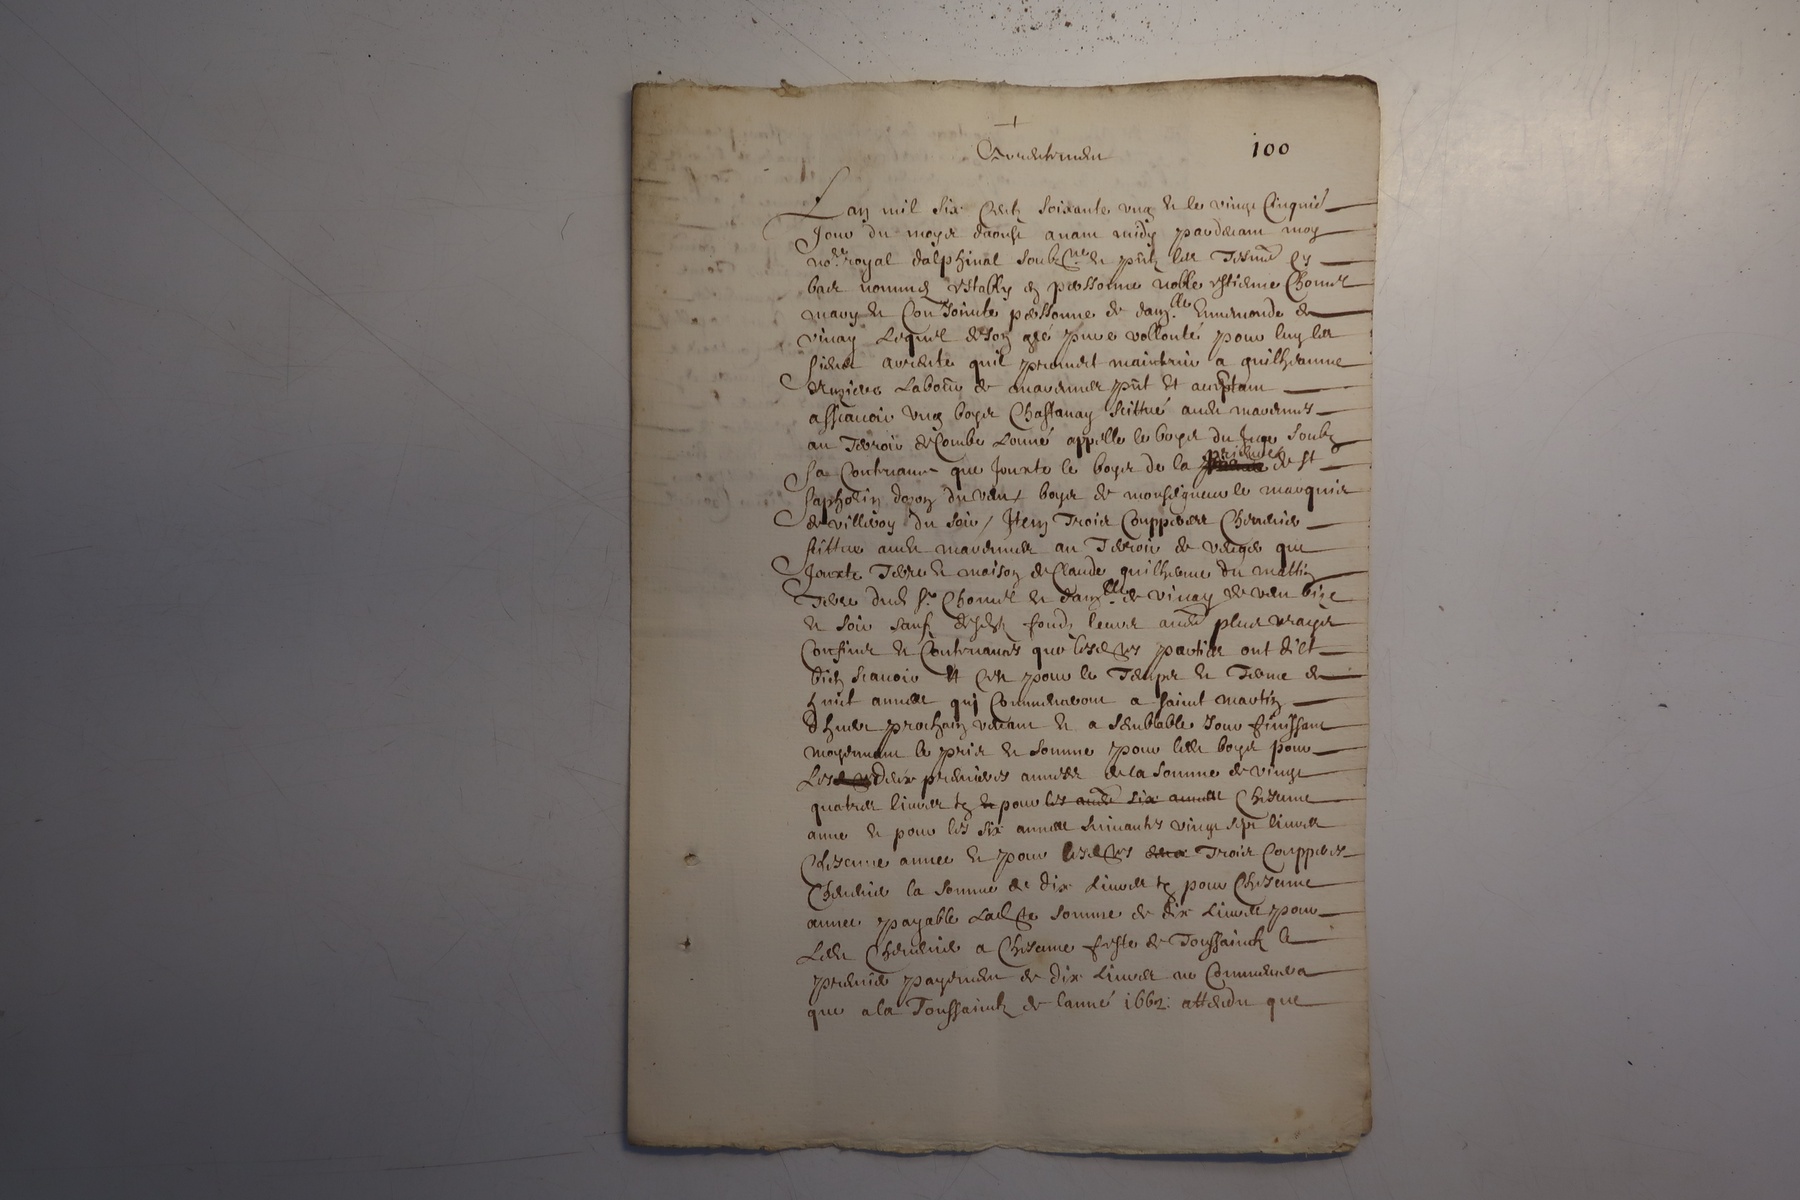 +
Arrentement
100
Lan mil six centz soixante ung et le vingt cinquie
Jour du moys daoust avant midy pardevant moy
no.re royal dalphinal soubz.ne et pntz les Tesms es
bas nommes estably en personne noble estienne Chomel
mary et Conjointe personne de dam.lle
vinay Lequel de son gré pure vollonté pour luy les
siens arrente quil promect maintenir a guilheaume
Labour de pnt et acceptant
assavoir ung boys Chastanay scittué aud
au Terroir de Combe appelle le boys du Juge soubz
sa Contenance que Jouxte le boys de la prieuré de St
du vent boys de monseigneur le marquis
de villeroy du soir / Item Troys Coupperes Cheneviere
scittue aud au Terroir de que
Jouxte Terre et maison de Claude guilheaume du mattin
Terre dud sr Chomel et dam.lle de vinay de vent bize
et soir sauf desd fondz leurs autres plus vrayes
Confines et Contenances que lesd tes parties ont dict
bien scavoir et cest pour le Temps et Terme de
huict annees qui Commenceront a saint martin
dhiver prochain venant et a semblable Jour finissant
moyennant le pris et somme pour led boys pour
Les deux premieres annees de la somme de vingt
quatres livres tz et pour les autres six annees Chescune
anne et pour les six annees suivantes vingt sept livres
Chescune annee et pour lesd tes Trois Coupperes
Cheneviere la somme de dix Livres tz pour Chescune
annee payable Lad te somme de dix Livres pour
Led Cheneviere a Chescune feste de Toussainctz le
premier payement de dix Livres ne Commencera
que a la Toussainctz de lanné 1662: attendu que